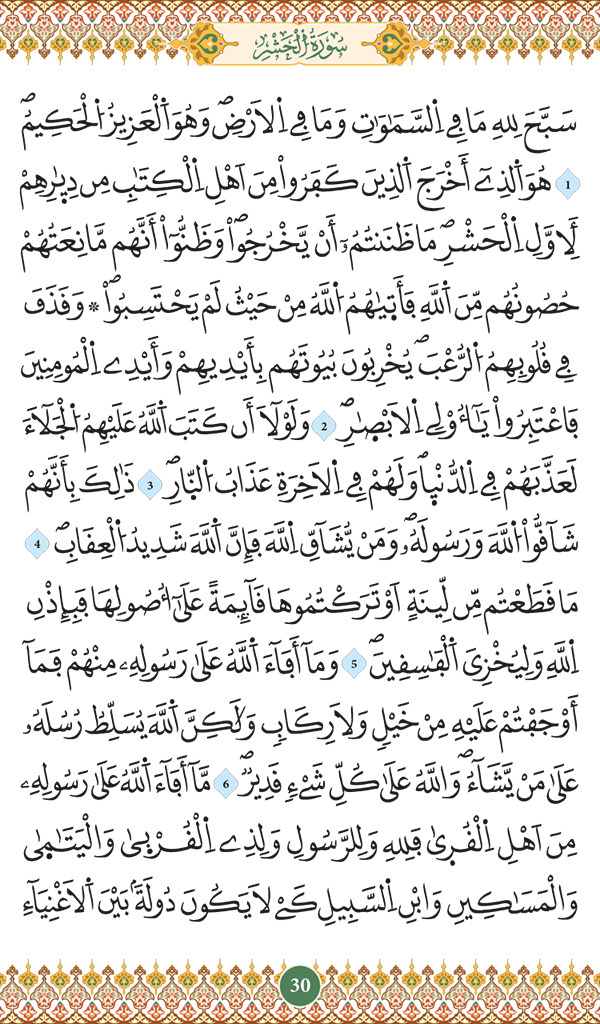 سُورَةُ الْحَشْرِ
سَبَّحَ لِلهِ مَا فِے اِ۬لسَّمَٰوَٰتِ وَمَا فِے اِ۬لَارْضِۖ وَهُوَ اَ۬لْعَزِيزُ اُ۬لْحَكِيمُۖ
1 هُوَ اَ۬لذِےٓ أَخْرَجَ اَ۬لذِينَ كَفَرُواْ مِنَ اَهْلِ اِ۬لْكِتَٰبِ مِن دِيٰ۪رِهِمْ
لِأَوَّلِ اِ۬لْحَشْرِۖ مَا ظَنَنتُمُۥٓ أَنْ يَّخْرُجُواْۖ وَظَنُّوٓاْ أَنَّهُم مَّانِعَتُهُمْ
حُصُونُهُم مِّنَ اَ۬للَّهِ فَأَت۪يٰهُمُ اُ۬للَّهُ مِنْ حَيْثُ لَمْ يَحْتَسِبُواْۖ * وَقَذَفَ
فِے قُلُوبِهِمُ اُ۬لرُّعْبَۖ يُخْرِبُونَ بُيُوتَهُم بِأَيْدِيهِمْ وَأَيْدِے اِ۬لْمُومِنِينَ
فَاعْتَبِرُواْ يَٰٓأُوْلِے اِ۬لَابْصٰ۪رِۖ 2 وَلَوْلَآ أَن كَتَبَ اَ۬للَّهُ عَلَيْهِمُ اُ۬لْجَلَآءَ
لَعَذَّبَهُمْ فِے اِ۬لدُّنْي۪اۖ وَلَهُمْ فِے اِ۬لَاخِرَةِ عَذَابُ اُ۬لنّ۪ارِۖ 3 ذَٰلِكَ بِأَنَّهُمْ
شَآقُّواْ اُ۬للَّهَ وَرَسُولَهُۥۖ وَمَنْ يُّشَآقِّ اِ۬للَّهَ فَإِنَّ اَ۬للَّهَ شَدِيدُ اُ۬لْعِقَابِۖ 4
مَا قَطَعْتُم مِّن لِّينَةٍ اَوْ تَرَكْتُمُوهَا قَآئِمَةً عَلَىٰٓ أُصُولِهَا فَبِإِذْنِ
اِ۬للَّهِ وَلِيُخْزِيَ اَ۬لْفَٰسِقِينَۖ 5 وَمَآ أَفَآءَ اَ۬للَّهُ عَلَىٰ رَسُولِهِۦ مِنْهُمْ فَمَآ
أَوْجَفْتُمْ عَلَيْهِ مِنْ خَيْلٍ وَلَا رِكَابٍ وَلَٰكِنَّ اَ۬للَّهَ يُسَلِّطُ رُسُلَهُۥ
عَلَىٰ مَنْ يَّشَآءُۖ وَاللَّهُ عَلَىٰ كُلِّ شَےْءٖ قَدِيرٞۖ 6 مَّآ أَفَآءَ اَ۬للَّهُ عَلَىٰ رَسُولِهِۦ
مِنَ اَهْلِ اِ۬لْقُر۪ىٰ فَلِلهِ وَلِلرَّسُولِ وَلِذِے اِ۬لْقُرْب۪ىٰ وَالْيَتَٰم۪ىٰ
وَالْمَسَٰكِينِ وَابْنِ اِ۬لسَّبِيلِ كَےْ لَا يَكُونَ دُولَةَۢ بَيْنَ اَ۬لَاغْنِيَآءِ
30